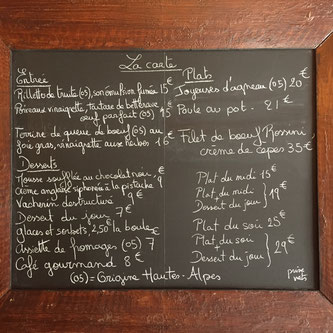 La carte
Entrée
Rillette de truite (05), son émulsion fumée 15€
Poireaux vinaigrette, tartare de betterave,
oeuf parfait (05) 15€
Terrine de queue de boeuf (05) au
foie gras, vinaigrette aux herbes 16€
Desserts
Mousse soufflée au chocolat noir, 9€
crème anglaise siphonnée à la pistache
Vacherin destructuré 9€
Dessert du jour 7€
glaces et sorbets, 2,50 la boule€
Assiette de fromages (05) 7€
Café gourmand 8€
(05) = Origine Hautes-Alpes
Plats
Joyeuses d'agneau (05) 20€
Poule au pot. 21€
Filet de boeuf Rossini
crème de cèpes 35€
Plat du midi 15€
Plat du midi
+
Dessert du jour } 19€
Plat du soir 25€
Plat du soir
+
Dessert du jour } 29€
prix
nets